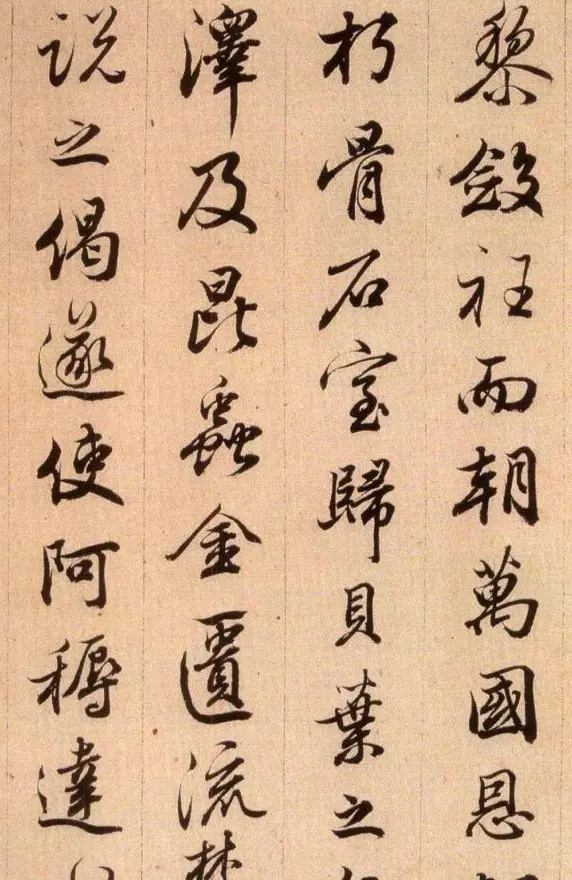 黎斂衽而朝萬國恩
朽骨石室歸貝葉之
澤及昆蟲金匱流
説之偈遂使阿耨達